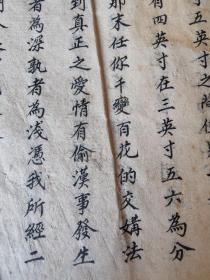 五英寸之陰
有四英寸在三英寸五六為分
那末任你千變百花的交媾法
到真正之愛情有偷漢事發生
者為深孰者為淺憑我所經二